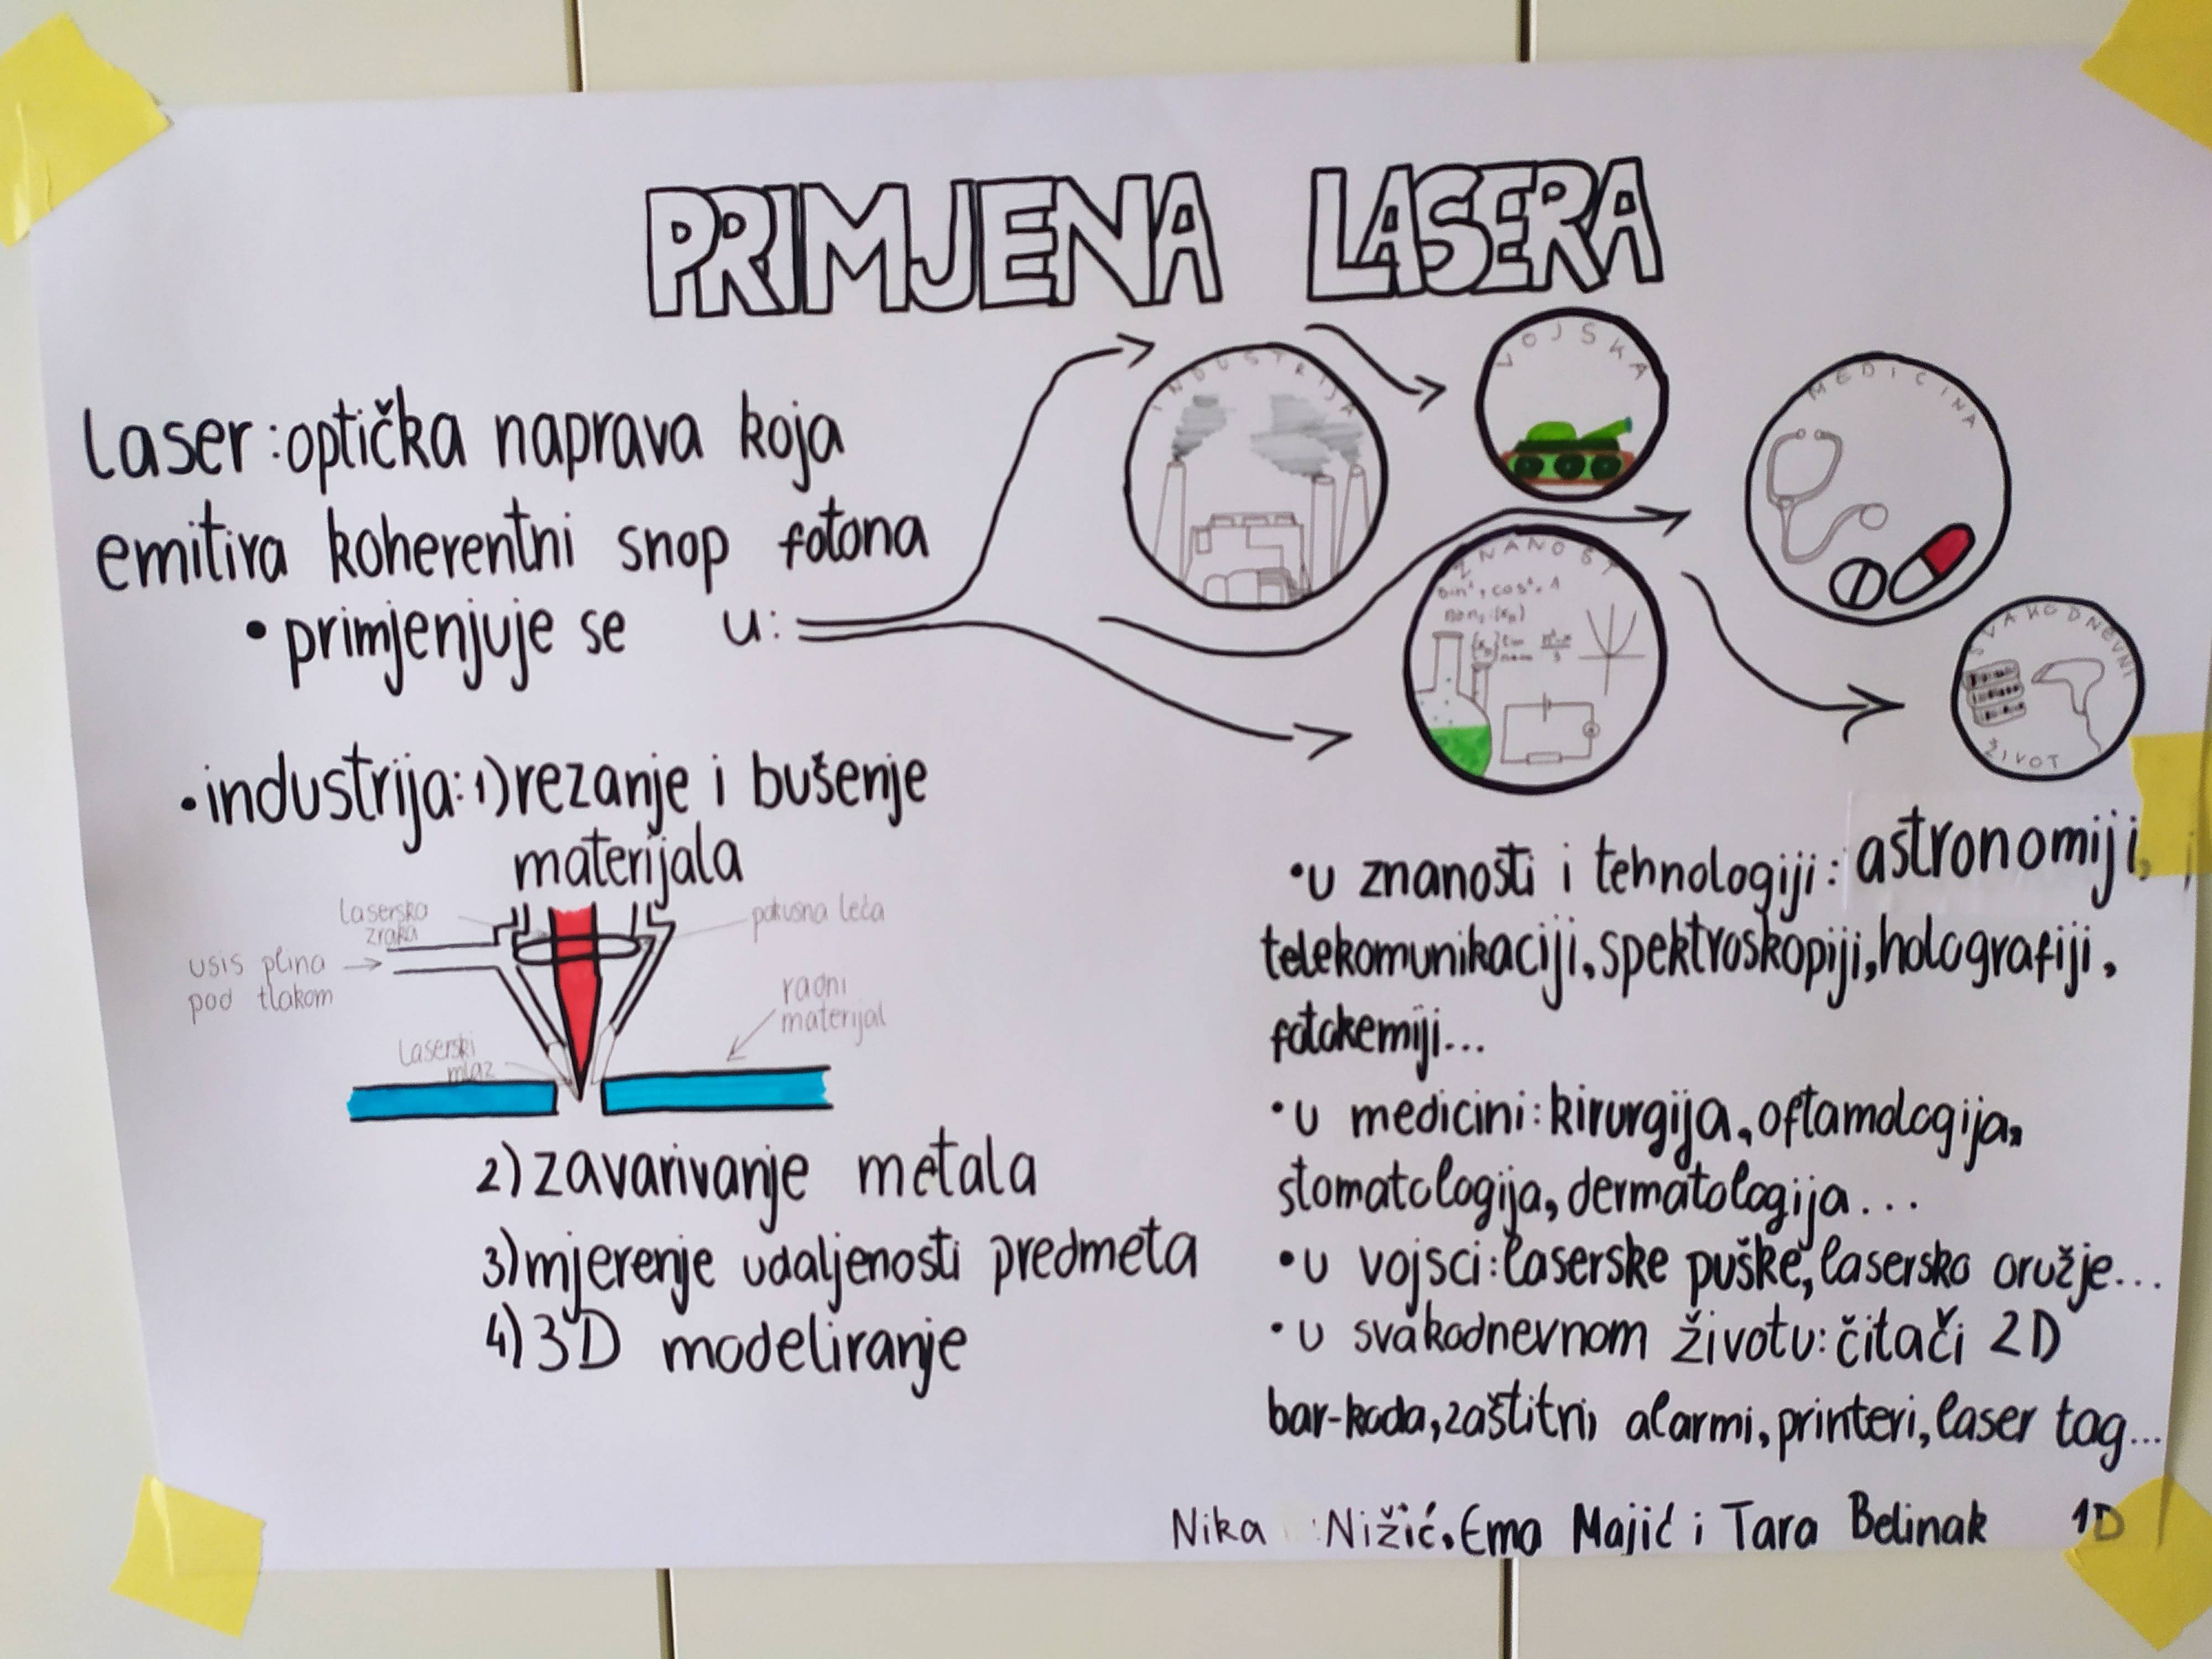 PRIMJENA LASERA
laser: optička naprava koja
emitira koherentni snop fotona
• primjenjuje se u:
INDUSTRIJA
VOJSKA
MEDICINA
ZNANOST
SVAKODNEVNI
ŽIVOT
• industrija: 1) rezanje i bušenje
materijala
laserska
zraka
usis plina
pod tlakom
pokusna leća
radni
materijal
Laserski
mlaz
2) zavarivanje metala
3) mjerenje udaljenosti predmeta
4) 3D modeliranje
• u znanosti i tehnologiji: astronomiji,
telekomunikaciji, spektroskopiji, holografiji,
fotokemiji...
• u medicini: kirurgija, oftamologija,
stomatologija, dermatologija...
• u vojsci: laserske puške, lasersko oružje...
• u svakodnevnom životu: čitači 2D
bar-koda, zaštitni alarmi, printeri, laser tag...
Nika Nižić, Ema Majić i Tara Belinak 1D